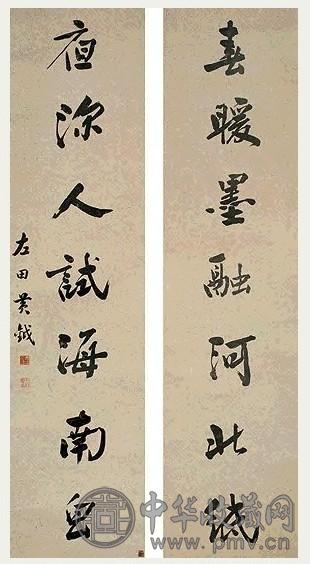 春暖墨融河北
夜深人試海南
左田黃鉞
中华收藏网
www.pmv.cn